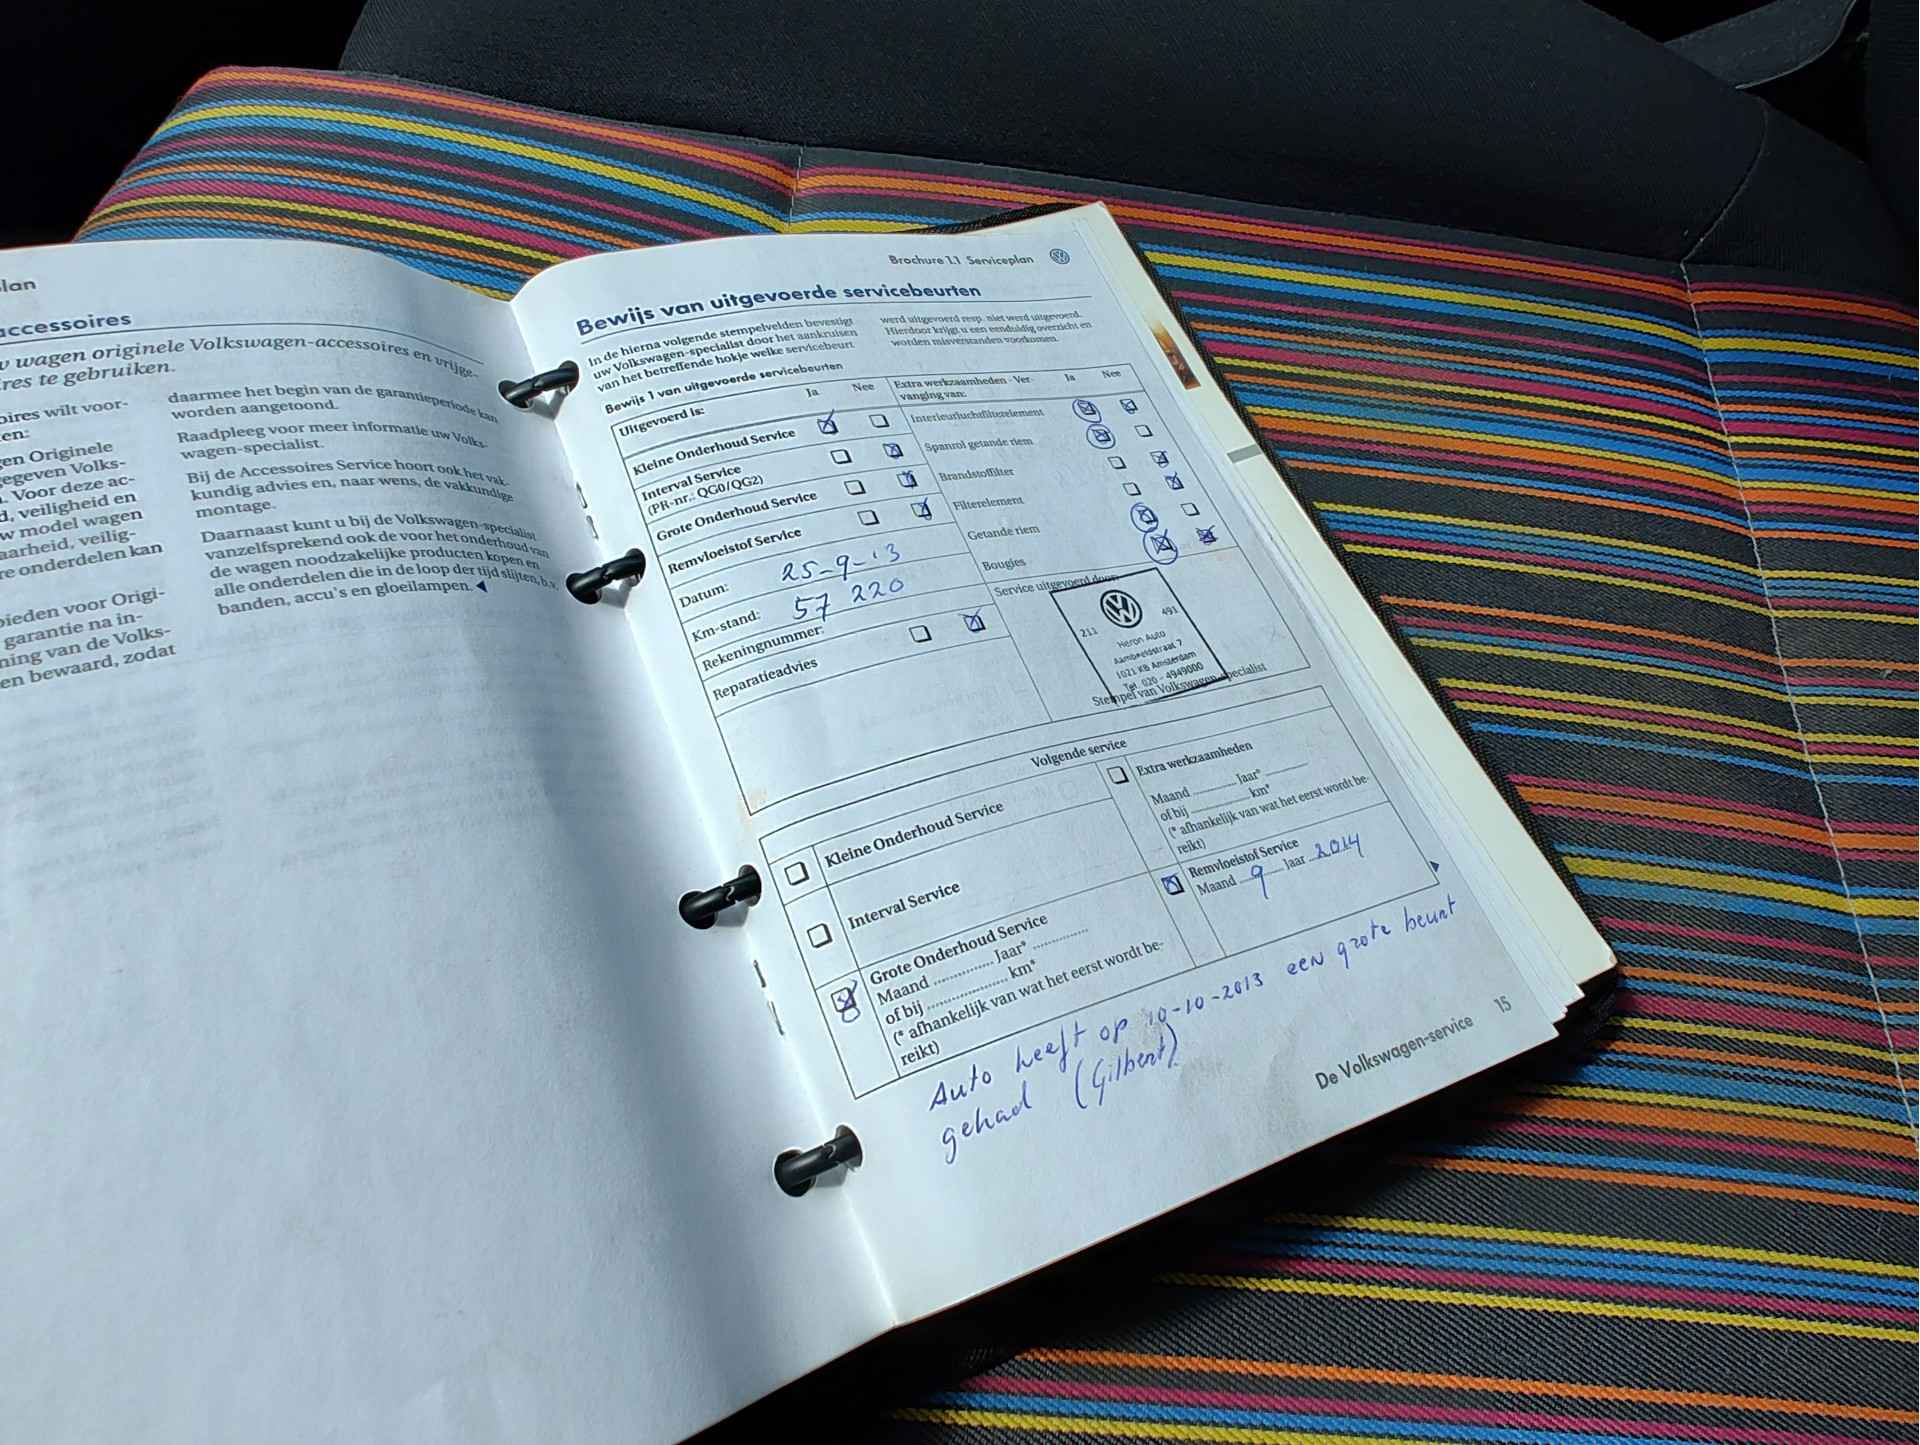 lan
accessoires
w wagen originele Volkswagen-accessoires en vrijge-
res te gebruiken.
oires wilt voor-
en:
gen Originele
gegeven Volks-
. Voor deze ac-
d, veiligheid en
w model wagen
aarheid, veilig-
re onderdelen kan
bieden voor Origi-
garantie na in-
ning van de Volks-
en bewaard, zodat
daarmee het begin van de garantieperiode kan
worden aangetoond.
Raadpleeg voor meer informatie uw Volks-
wagen-specialist.
Bij de Accessoires Service hoort ook het vak-
kundig advies en, naar wens, de vakkundige
montage.
Daarnaast kunt u bij de Volkswagen-specialist
vanzelfsprekend ook de voor het onderhoud van
de wagen noodzakelijke producten kopen en
alle onderdelen die in de loop der tijd slijten, b.v.
banden, accu's en gloeilampen.
Brochure 1.1 Serviceplan
Bewijs van uitgevoerde servicebeurten
In de hierna volgende stempelvelden bevestigt
uw Volkswagen-specialist door het aankruisen
van het betreffende hokje welke servicebeurt
werd uitgevoerd resp. niet werd uitgevoerd.
Hierdoor krijgt u een eenduidig overzicht en
worden misverstanden voorkomen.
Bewijs 1 van uitgevoerde servicebeurten
Uitgevoerd is:
Ja Nee
Kleine Onderhoud Service
Interval Service
(PR-nr.: QG0/QG2)
Grote Onderhoud Service
Remvloeistof Service
Datum: 25-9-'13
Km-stand: 57 220
Rekeningnummer:
Reparatieadvies
Extra werkzaamheden - Ver-
vanging van:
Ja Nee
Interieurluchtfilterelement
Spanrol getande riem
Brandstoffilter
Filterelement
Getande riem
Bougies
Service uitgevoerd door:
211 491
Heron Auto
Aambeeldstraat 7
1021 KB Amsterdam
Tel. 020 - 4949000
Stempel van Volkswagen-specialist
Volgende service
Kleine Onderhoud Service
Interval Service
Grote Onderhoud Service
Maand ............... Jaar* ..............
of bij .................... km*
(* afhankelijk van wat het eerst wordt be-
reikt)
Extra werkzaamheden
Maand ............ Jaar* ............
of bij ............... km*
(* afhankelijk van wat het eerst wordt be-
reikt)
Remvloeistof Service
Maand 9 Jaar 2014
Auto heeft op 10-10-2013 een grote beurt
gehad (Gilbert)
De Volkswagen-service 15